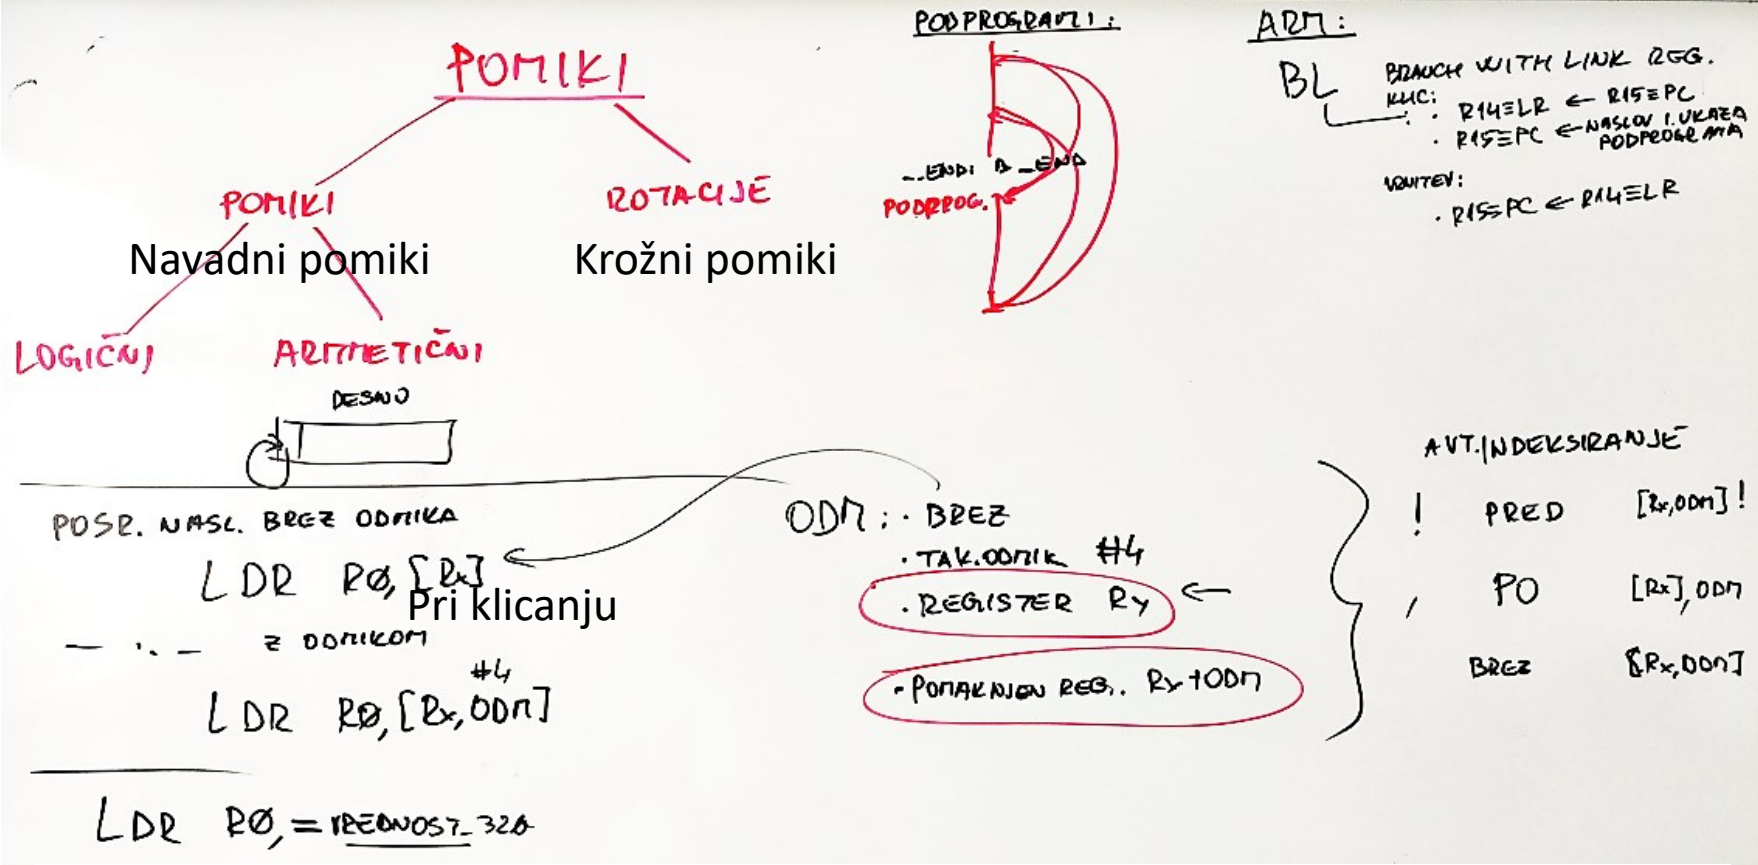 POMIKI
POMIKI
ROTACIJE
Navadni pomiki
Krožni pomiki
LOGIČNI
ARITMETIČNI
DESNO
PODPROGRAMI:
_ENDI B _END
PODPROG.
ARM:
BL
BRANCH WITH LINK REG.
KLIC:
· R14≡LR ← R15≡PC
· R15≡PC ← NASLOV 1. UKAZA
PODPROGRAMA
VRNITEV:
· R15≡PC ← R14≡LR
POSR. NASL. BREZ ODMIKA
LDR RØ, [Rx]
Pri klicanju
— ·. — Z ODMIKOM
#4
LDR RØ, [Rx, ODM]
LDR RØ, = VREDNOST_32b
ODM: · BREZ
· TAK. ODMIK #4
· REGISTER Ry ←
· POMAKNJEN REG. Ry+ODM
AVT. INDEKSIRANJE
! PRED [Rx,ODM]!
, PO [Rx], ODM
BREZ [Rx,ODM]